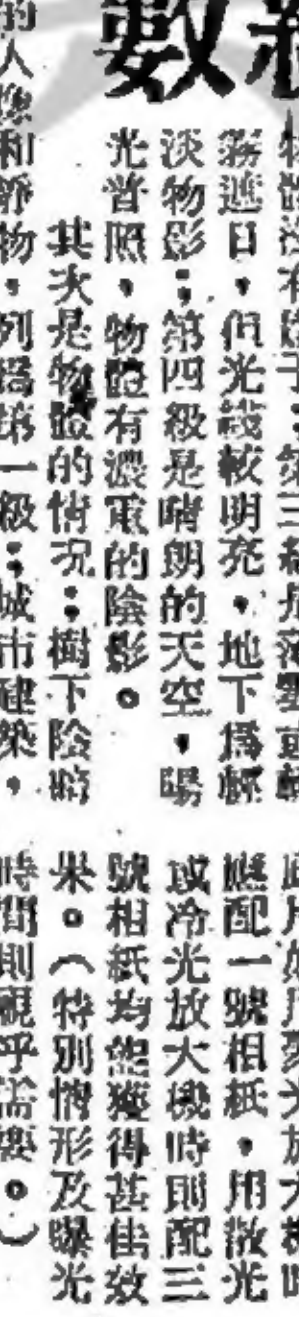 數
物體沒有影子；第三級是薄雲或輕
霧遮日，但光綫較明亮，地下爲輕
淡物影；第四級是晴朗的天空，陽
光普照，物體有濃重的陰影。
其次是物體的情况：樹下陰暗
的人像和靜物，列爲第一級；城市建築，
應配一號相紙，用散光
或冷光放大機時則配三
號相紙均能獲得甚佳效
果。（特別情形及曝光
時間則視乎需要。）